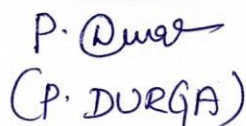 P. Durga
(P. DURGA)